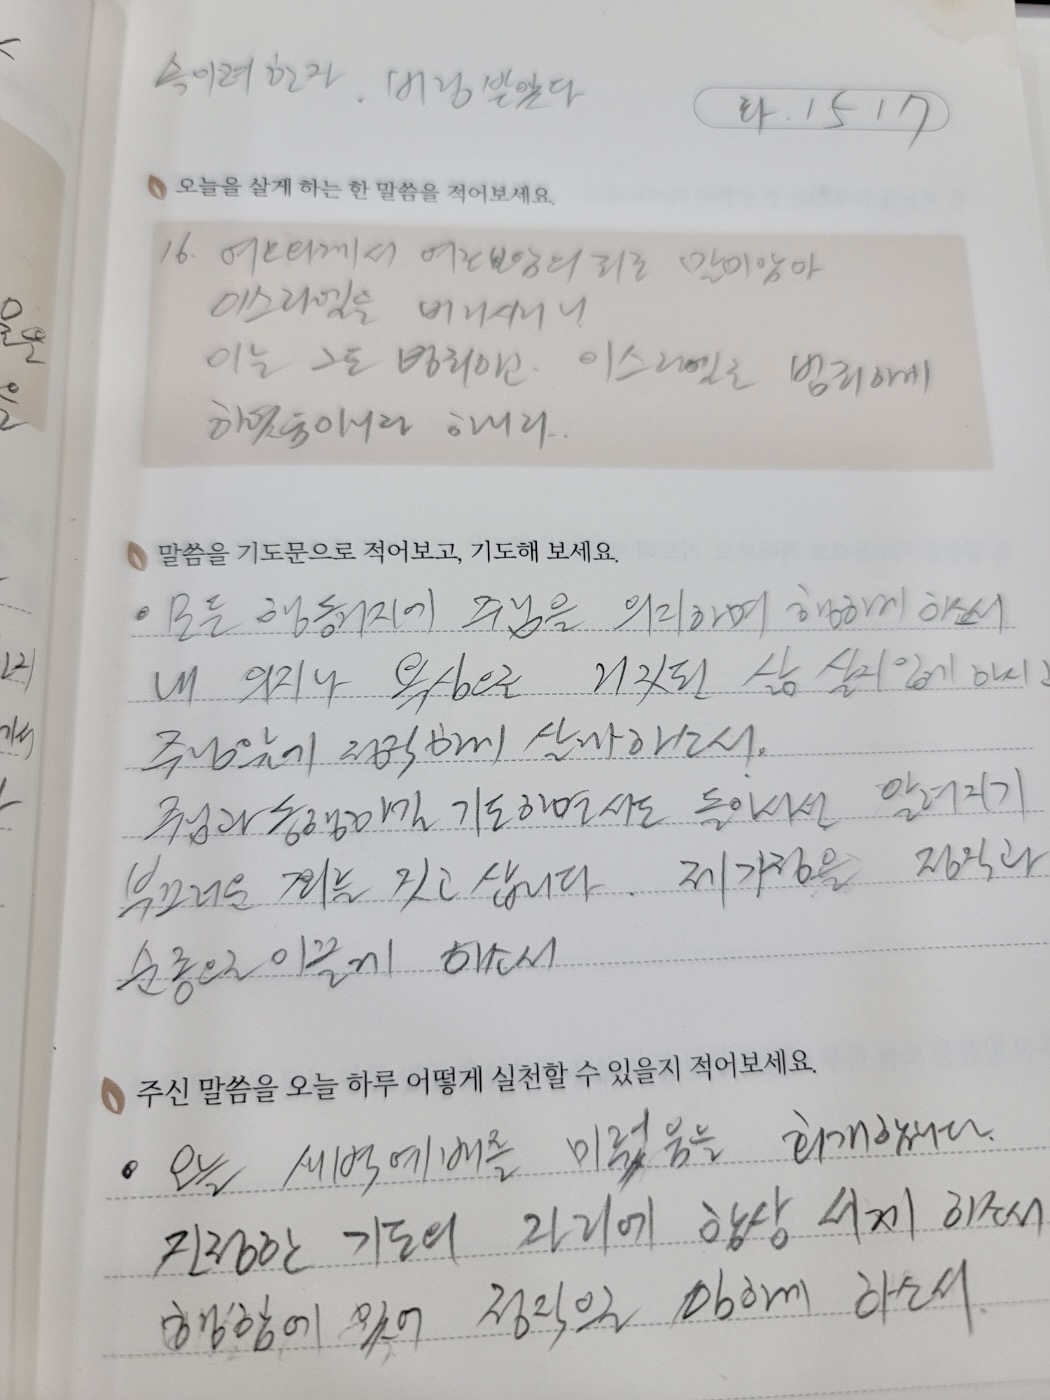 속이려 한자, 버림 받았다
타. 15 17
오늘을 살게 하는 한 말씀을 적어보세요.
16. 여호와께서 여로보암의 죄로 말미암아
이스라엘을 버리시리니
이는 그도 범죄하고 이스라엘로 범죄하게
하였음이니라 하니라..
말씀을 기도문으로 적어보고, 기도해 보세요.
• 모든 행동거지에 주님을 의지하며 행하게 하소서
내 의지나 욕심으로 거짓된 삶 살지 않게 하시고
주님앞에 정직하게 살게하소서.
주님과 동행하길 기도하면서도 돌아서선 알려지기
부끄러운 죄를 짓고 삽니다. 제 가정을 정직과
순종으로 이끌게 하소서
주신 말씀을 오늘 하루 어떻게 실천할 수 있을지 적어보세요.
• 오늘 새벽예배를 미뤘음을 회개합니다.
진정한 기도의 자리에 항상 서게 하소서
행함에 있어 정직으로 임하게 하소서.